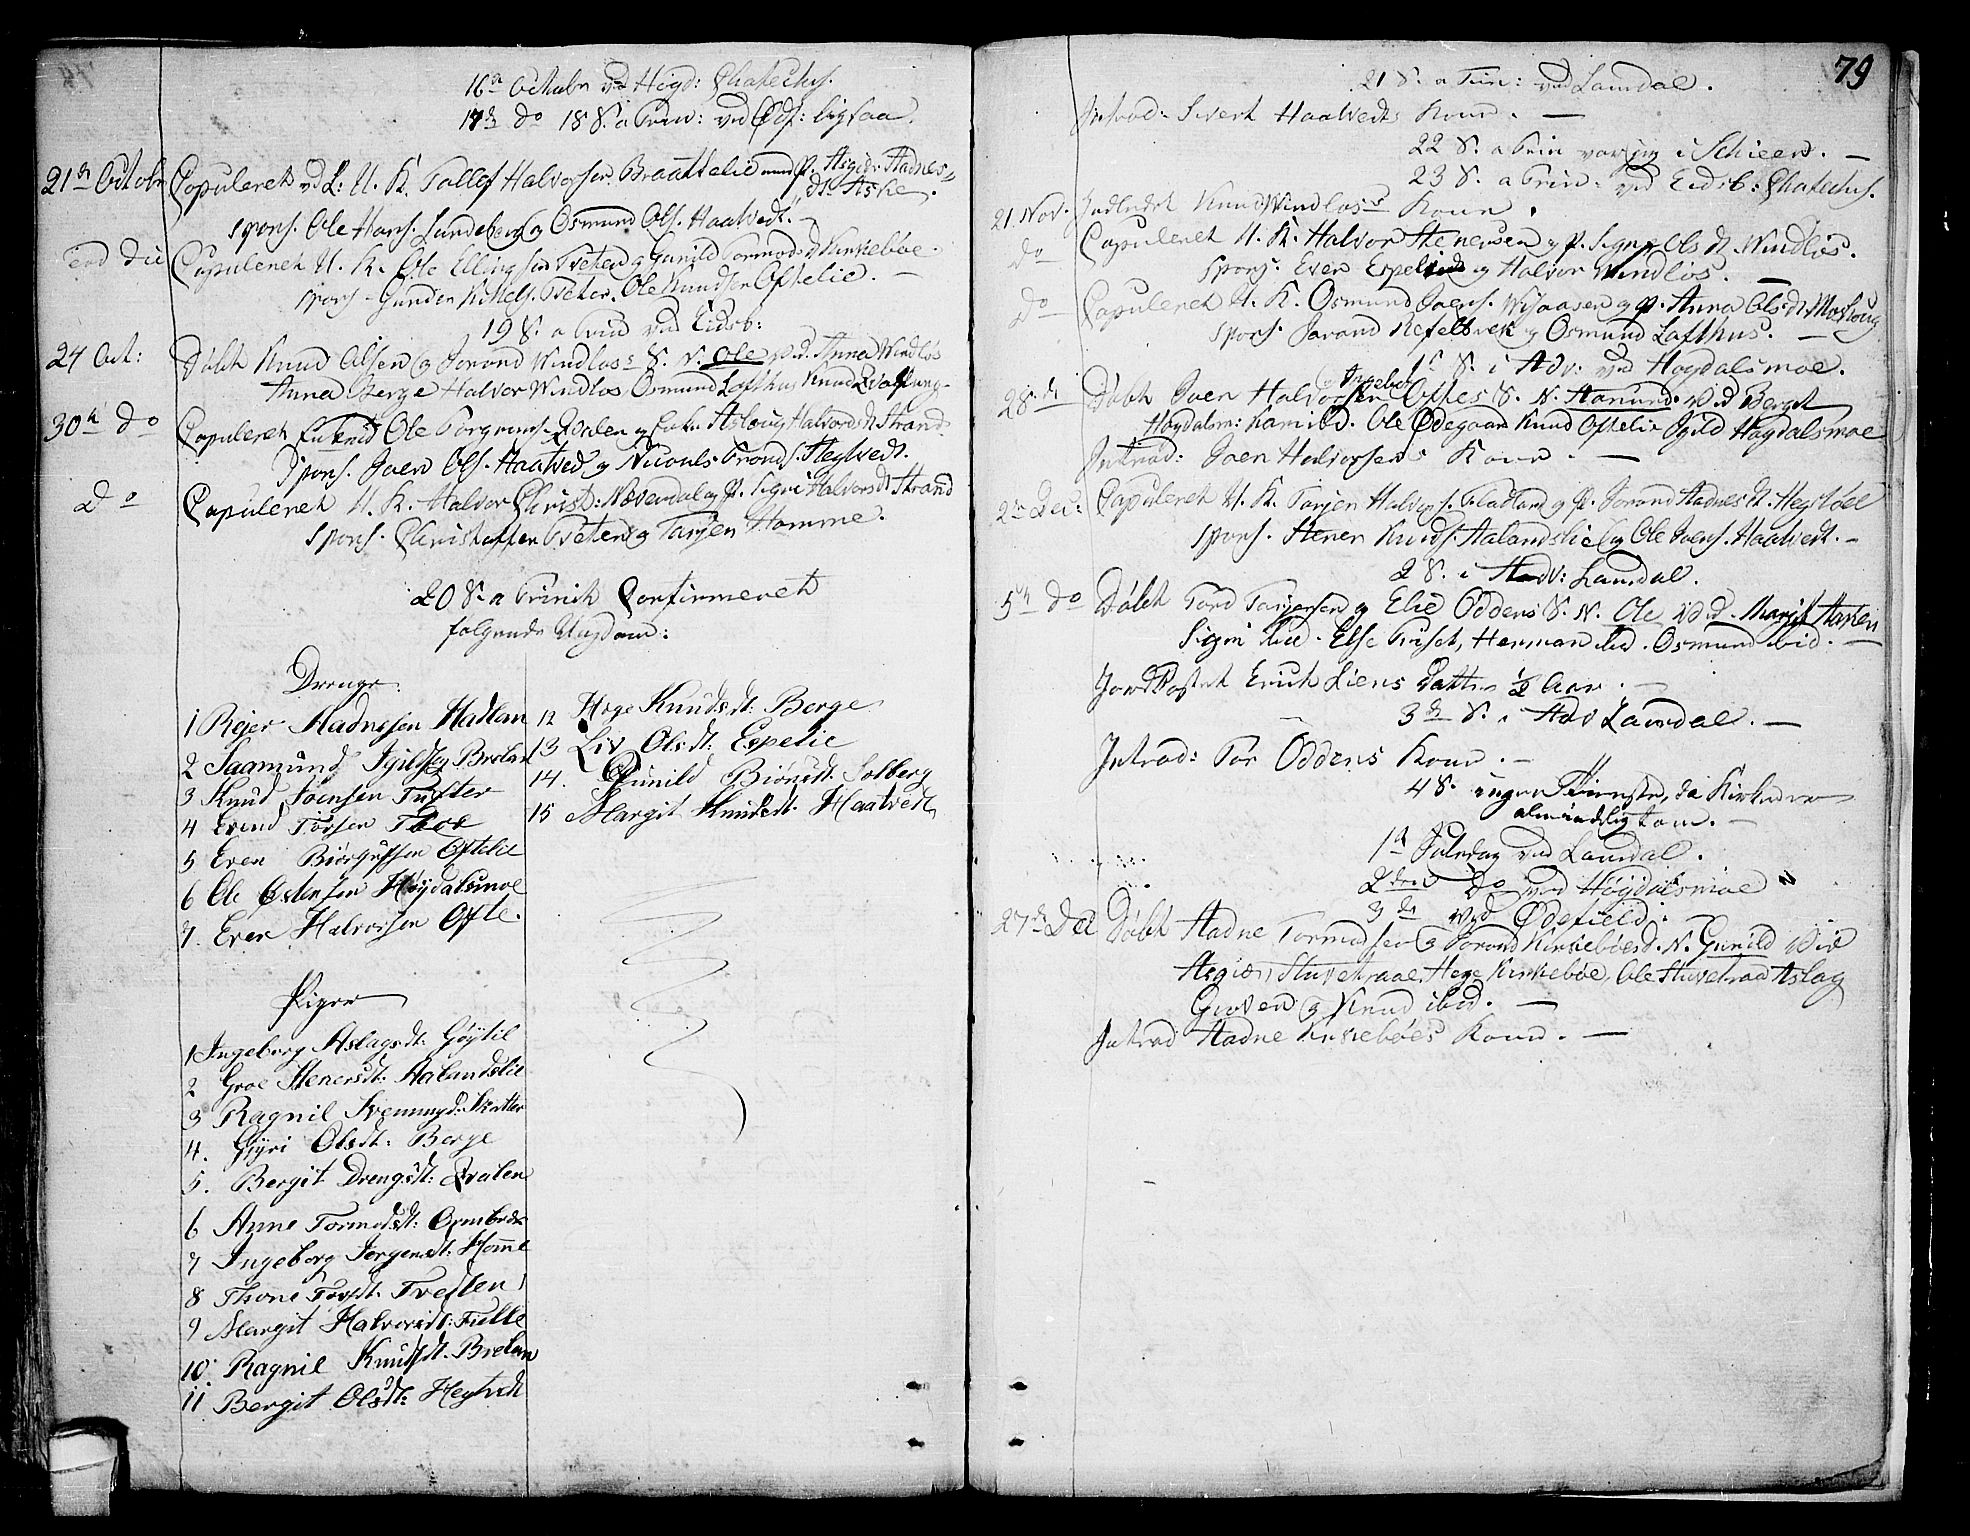 16de Octobr ved Høyd: Chatechis.
17de do 18 S. a Trin: ved Ødf: ligsaa.
21de Octobr Copuleret ved L: U. K. Tallef Halvorsen Braattelie med P. Asgier Aadnes-
dt Aske.
spons. Ole Hans. Lundeberg og Osmund Ols. Haatvedt.
eod die Copuleret U. K. Ole Ellingsen Træten og Gunild Tormodsdt Kirkebøe.
spons. Gunder Kittels. Træten, Ole Knudsen Oftelie.
19 S. a Trin ved Eidsb:
24 Oct: Døbt Knud Olsen og Jorand Windloss S. N. Ole v. d. Anna Windlos
Anna Berge Halvor Windlos Osmund Lofthus Knud
30te do Copuleret Enkemd Ole Torgrims. Qvalen og Enke Asloug Halvorsdt Strand
Spons. Joen Ols. Haatved og Nicouls Tronds. Hegtvedt.
do Copuleret U. K. Halvor Christ: Næsendal og P. Signe Halvorsdt Strand
spons. Christoffer Træten og Tarjen Homme.
20 S. a Trinit Confirmeret
følgende Ungdom:
Drenge.
1 Rejer Aadnesen Hadlan
2 Saamund Igilds: Breland
3 Knud Joensen Tufter
4 Evend Torsen
5 Even Biørgufsen Oftelie
6 Ole Østensen Høydalsmoe
7. Even Halvorsen Ofte.
Piger
1 Ingeborg Aslagsdt: Gøytil
2 Groe Stenersdt: Aalandslie
3 Ragnil Svenungd: Skatter
4. Gyri Olsdt: Berge
5. Bergit Drengsdt: Qvalen
6 Anne Tormodsdt:
7 Ingeborg Jorgensdt: Homme
8 Thone Torsdt: Træften
9 Margit Halvorsdt:
10. Ragnil Knudsdt. Brelan
11 Bergit Olsdt: Hegtvedt
12 Hæge Knudsdt: Berge
13 Liv Olsdt: Espelie
14. Gunild Biønsdt. Solberg
15 Margit Knudsdt. Haatvedt
79
21 S. a Trin: ved Laurdal.
Introd: Sivert Haatvedts Kone. —
22 S. a Trin var jeg i Schieen. —
23 S. a Trin: ved Eidsb: Chatechis.
21 Nov. Indledet Knud Windloss Kone.
do Copuleret U. K. Halvor Stenersen og P. Signe Olsdt Windlos.
Spons. Even Espelie og Halvor Windlos. —
do Copuleret U. K. Osmund Joens. og P. Anna Olsdt
spons. Jorand og Osmund Lofthus. —
1te S. i Adv: ved Høydalsmoe.
28de Døbt Joen Halvorsen og Ingebor Oftes S. N. Aanund. ved Bergit
Høydalsm: Kamild. Ole Ødegaar Knud Oftelie Igild Høydalsmoe
Introd: Joen Halvorsens Kone. —
2de Dec: Copuleret U. K. Tarjen Halvors. Fladland og P. Jorand Aadnesdt. Hegtvedt
spons. Stener Knuds. Aalandslie og Ole Joens. Haatvedt. —
2 S. i Adv: Laurdal.
5te do Døbt Tord Tarjersen og Elie Oddens S. N. Ole v. d. Margit
Signi ibid. Else Triset, Herman ibid. Osmund ibid. —
Jord Kastet Erich Liens Datter ½ Aar. —
3de S. i Adv Laurdal. —
Introd: Tor Oddens Kone. —
4 S. ingen Tieneste, da Kirken var
almindelig tom. —
1te Juledag ved Laurdal.
2den do ved Høydalsmoe
3de ved Ødefield:
27de Dec Døbt Aadne Tormodsen og Jorand Kirkebøes D. N. Gunild ved
Asgier Stuvetraae, Hege Kirkebøe, Ole Stuvetraa Aslag
Groven og Knud ibid. —
Introd Aadne Kirkebøes Kone. —